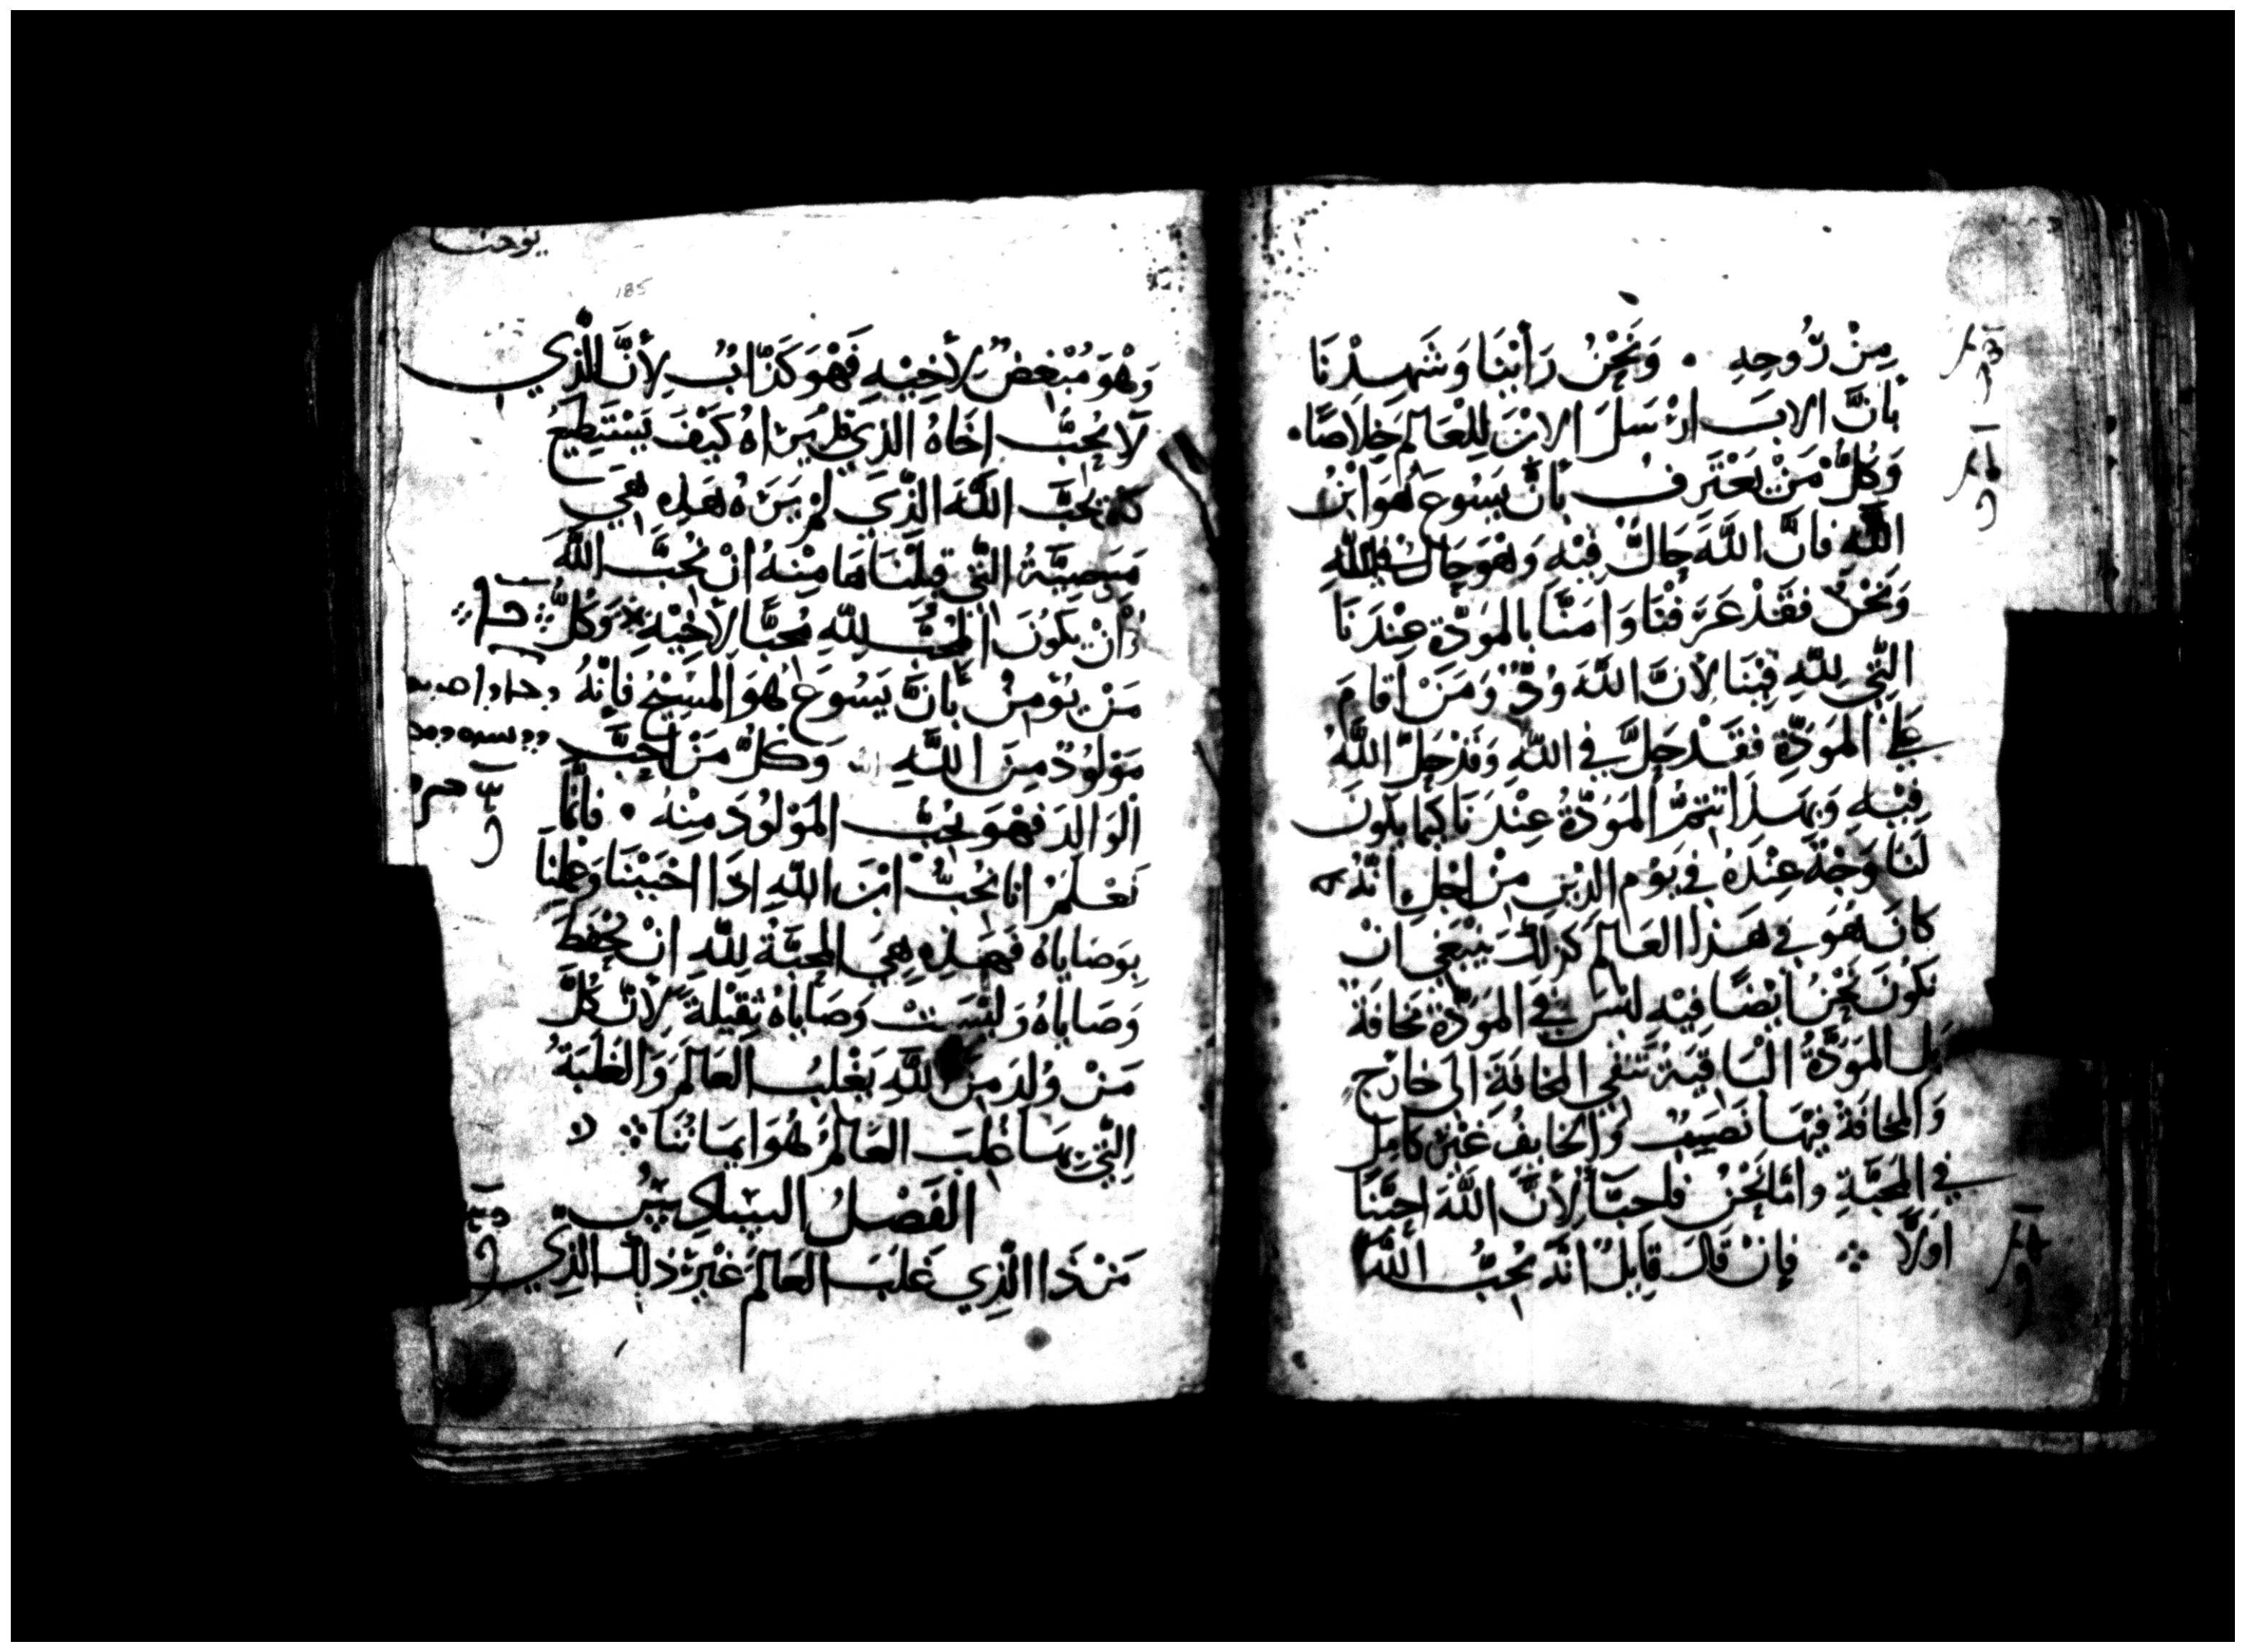 مِنْ رُّوحِهِ . وَنَحْنُ رَأَيْنَا وَشَهِدْنَا
بأنَّ الاب ارْسَلَ الابْنَ لِلْعَالَمِ خِلاصًا .
وَكُلُّ مَنْ يَعْتَرِفُ بأنَّ يَسُوعَ هُوَ ابْنُ
اللَّهِ فانَّ اللَّهَ حَالٌّ فِيْهِ وَهُوَ حَالٌ في اللهِ
وَنَحْنُ فَقَدْ عَرَفْنَا وَامَنَّا بالمَوَدَّةِ عِنْدَنَا
التِّي لِلَّهِ فِيْنَا لأنَّ اللَّهَ وُدٌّ وَمَنْ أقامَ
عَلى المَوَدَّةِ فقَدْ حَلَّ في اللَّهِ وَقَدْ حَلَّ اللَّهُ
فِيْهِ وَبِهَذَا تَتِمُّ المَوَدَّةُ عِنْدَنَا كَيمَا يَكُونَ
لَنَا وَجْهٌ عِنْدَهُ في يَوْمِ الدِّينِ مِنْ اجْلِ انَّهُ كَمَا
كانَ هُوَ في هَذَا العَالَمِ كَذلِكَ يَنْبَغِي انْ
نَكُونَ نَحْنُ ايْضًا فِيْهِ لَيْسَ في المَوَدَّةِ مَخافَةٌ
بَل المَوَدَّةُ الْبَاقِيَةُ تَنْفِي المَخافَةَ الَى خَارِجٍ
وَالمَخافَةُ فِيْهَا نَصِيبٌ وَالخايِفُ غَيْرُ كَامِلٍ
في المَحَبَّةِ وامَّا نَحْنُ فلحبّ لأنَّ اللَّهَ احَبَّنَا
اوَلاً فإنْ قَالَ قايِلٌ انَّهُ يُحِبُّ اللَّهَ
يوحنا
185
وَهْوَ مُبْغِضٌ لأَخِيْهِ فَهْوَ كَذّابٌ لأنَّ الَّذِي
لاَ يُحِبَّ اخَاهُ الذِي قدْ يَرَاهُ كَيْفَ يَسْتَطِيْعُ
يُحِبَّ اللَّهَ الَّذِي لَمْ يَرَهُ هَذِهِ هِيَ
وَصِيَّةٌ التِّي قَبِلْنَاهَا مِنْهُ انْ نُحِبَّ اللَّهَ
وَأنْ يَكُونَ المُحِبُّ لِلَّهِ مُحِبًّا لأَخِيْهِ وَكُلُّ
مَنْ يُؤمِنُ بأنَّ يَسُوعَ هُوَ المَسِيْحُ فإنَّهُ
مَوْلُودٌ مِنَ اللَّهِ وَكُلُّ مَنْ احَبَّ
الْوَالِدَ فهْوَ يُحِبُّ المَوْلُودَ مِنْهُ . فانَّمَا
نَعْلَمُ انا نُحِبُّ ابْنَ اللَّهِ اذَا احْبَبْنَا وَعَمِلْنَا
بِوَصَايَاهُ فَهَذِهِ هِيَ المَحَبَّةُ لِلَّهِ انْ نَحْفَظَ
وَصَايَاهُ وَلَيْسَتْ وَصَايَاهُ ثَقِيْلَةً لأنَّ كُلَّ
مَنْ وُلِدَ مِنَ اللَّهِ يَغْلِبُ العَالَمَ وَالغَلَبَةُ
التِّي بِهَا غُلِبَ العَالَمُ هُوَ ايمَانُنَا
الْفَصْلُ السَّادِسُ
مَنْ ذَا الَّذِي غَلَبَ العَالَمَ غَيْرُ ذلِكَ الَّذِي